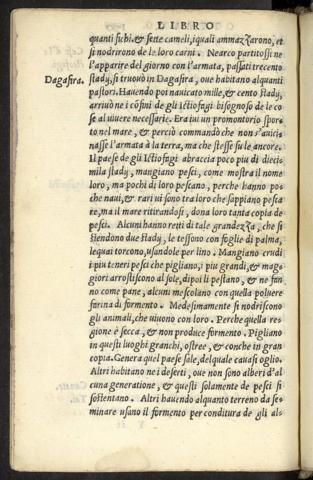 LIBRO
quanti fichi, & sette cameli, iquali ammazzarono, et
si nodrirono de le loro carni. Nearco partitosi ne
l'apparire del giorno con l'armata, passati trecento
Dagasira. stadij, si truovò in Dagasira, oue habitano alquanti
pastori. Hauendo poi nauicato mille, & cento stadij,
arriuò ne i cõfini de gli Ictiofagi bisognoso de le co-
se al uiuere necessarie. Era iui un promontorio spor-
to nel mare, & perciò commandò che non s'auici-
nasse l'armata à la terra, ma che stesse su le ancore.
Il paese de gli Ictiofagi abraccia poco piu di dieci-
mila stadij, mangiano pesci, come mostra il nome
loro, ma pochi di loro pescano, perche hanno po-
che naui, & rari ui sono tra loro che sappiano pesca
re, ma il mare ritirandosi, dona loro tanta copia de
pesci. Alcuni hanno reti di tale grandezza, che si
stendono due stadij, le tessono con foglie di palma,
lequai torcono, usandole per lino. Mangiano crudi
i piu teneri pesci che pigliano, i piu grandi, & mag-
giori arrostiscono al sole, dipoi li pestano, & ne fan
no come pane, alcuni mescolano con quella poluere
farina di formento. Medesimamente si nodriscono
gli animali, che uiuono con loro. Perche quella re-
gione è secca, & non produce formento. Pigliano
in questi luoghi granchi, ostree, & conche in gran
copia. Genera quel paese sale, del quale cauasi oglio.
Altri habitano ne i deserti, oue non sono alberi d'al
cuna generatione, & questi solamente de pesci si
sostentano. Altri hauendo alquanto terreno da se-
minare usano il formento per conditura de gli al-